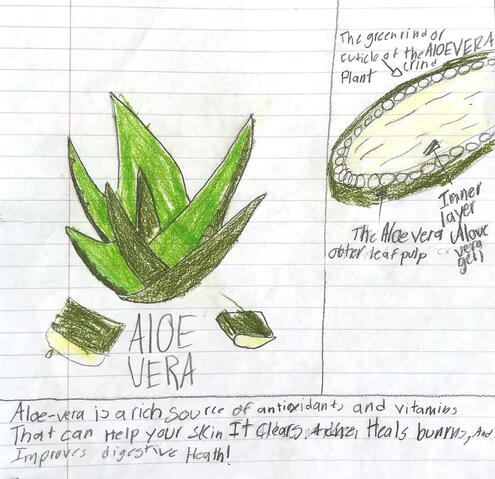 The green rind or
cuticle of the ALOEVERA
(rind
Plant
Inner
layer
The Aloe vera
outer leaf pulp
vera
gel)
AlOE
VERA
Aloe-vera is a rich source of antioxidants and vitamins
That can Help your skin It clears, Heals burns, And
Improves digestive Heath!